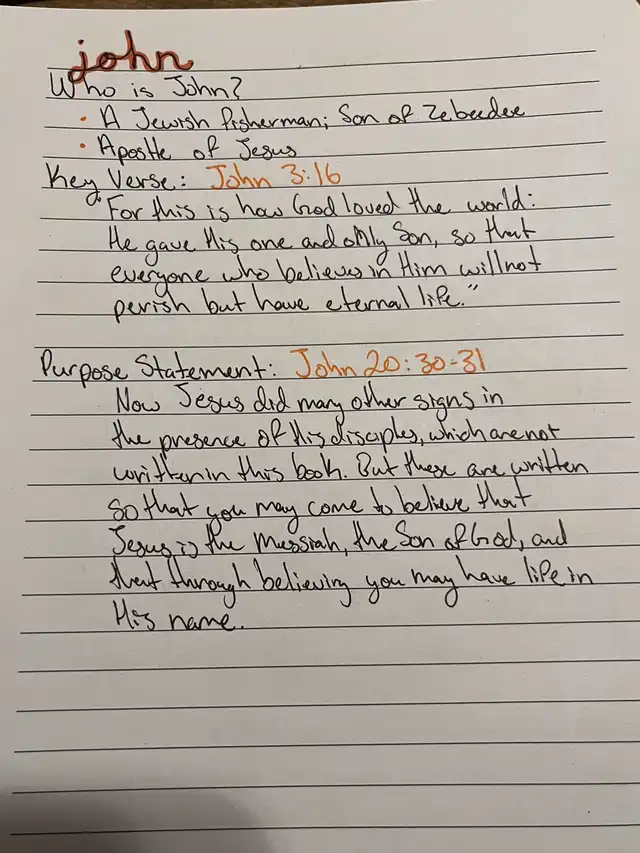 john
Who is John?
• A Jewish fisherman; Son of Zebedee
• Apostle of Jesus
Key Verse: John 3:16
"For this is how God loved the world:
He gave His one and only Son, so that
everyone who believes in Him will not
perish but have eternal life."
Purpose Statement: John 20:30-31
Now Jesus did many other signs in
the presence of His disciples, which are not
written in this book. But these are written
so that you may come to believe that
Jesus is the Messiah, the Son of God, and
that through believing you may have life in
His name.